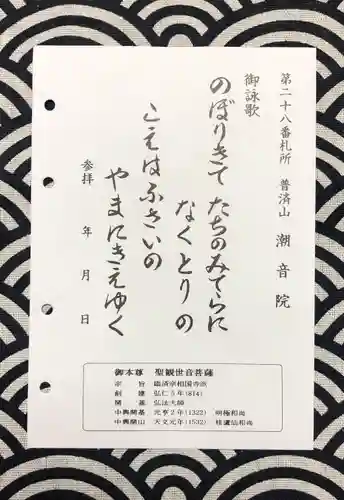 第二十八番札所　普済山　潮音院
御詠歌
のぼりきて　たちのみてらに
なくとりの
こえはふさいの
やまにきえゆく
参拝　年　月　日
御本尊　聖観世音菩薩
宗　旨　臨済宗相国寺派
創　建　弘仁5年(814)
開　基　弘法大師
中興開基　元亨2年(1322)　明極和尚
中興開山　天文元年(1532)　桂蘆估和尚